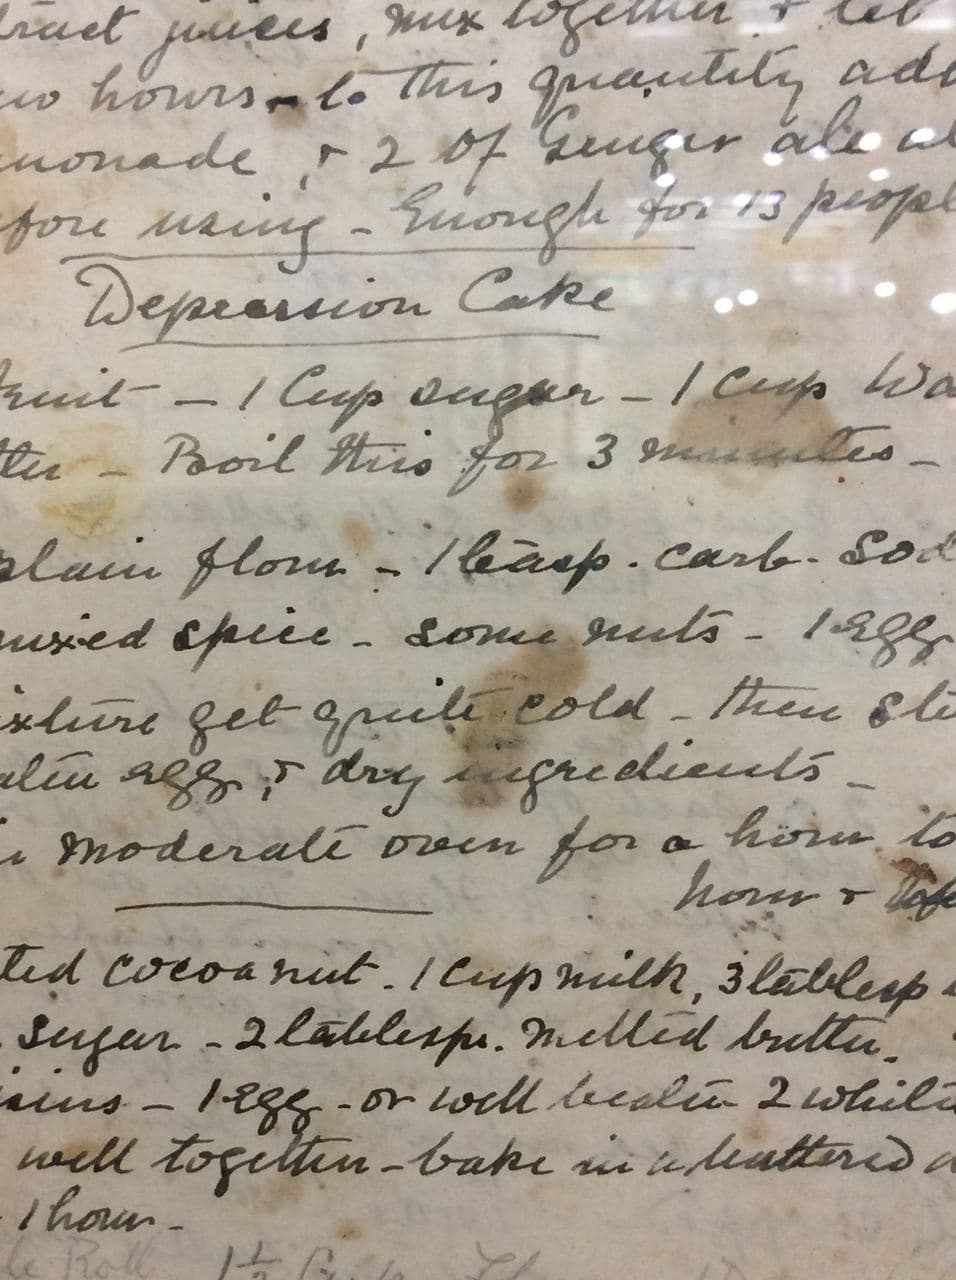 tract juices, mix together & let
wo hours - to this quantity add
monade, & 2 of Ginger ale al
efore using - Enough for 13 peopl
Depression Cake
Fruit - 1 Cup sugar - 1 Cup Wa
tter - Boil this for 3 minutes -
plain flour - 1 teasp. carb. Sod
mixed spice - some nuts - 1 Egg
ixture get quite cold - then sti
eaten egg, & dry ingredients -
moderate oven for a hour to
hour &
ted cocoanut. 1 Cup milk, 3 tablesp
sugar - 2 tablesp. Melted butter.
isins - 1 Egg - or well beaten 2 white
well together - bake in a buttered
- 1 hour -
Roll 1½